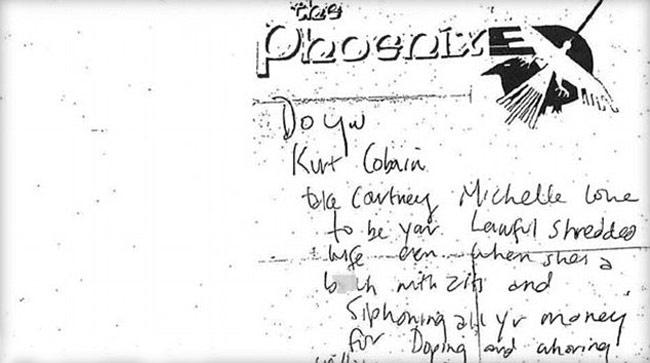 the
Phoenix
Do you
Kurt Cobain
take Courtney Michelle Love
to be your Lawful shredded
wife even when shes a
b ch with zits and
Siphoning all yr money
for Doping and whoring